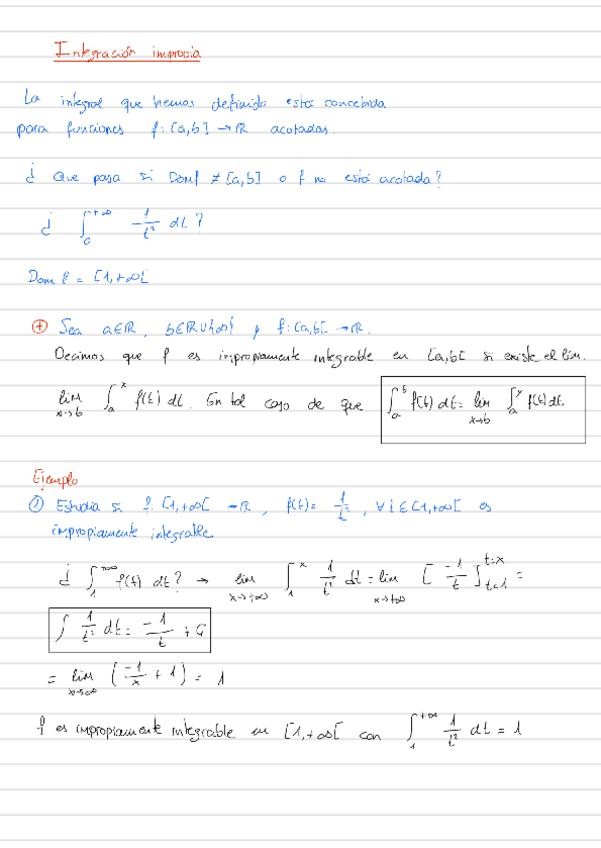 Integración impropia
La integral que hemos definido está concebida
para funciones f: [a,b] → ℝ acotadas.
¿ Que pasa si Domf ≠ [a,b] o f no está acotada?
¿ ∫₀^{+∞} -1/t² dt ?
Dom f = [1,+∞[
⊕ Sea a∈ℝ, b∈ℝ∪{∞} y f: [a,b[ → ℝ.
Decimos que f es impropiamente integrable en [a,b[ si existe el lím.
lim_{x→b} ∫ₐ^x f(t) dt. En tal caso de que ∫ₐ^b f(t) dt = lim_{x→b} ∫ₐ^x f(t) dt.
Ejemplo
① Estudia si f: [1,+∞[ → ℝ, f(t) = 1/t², ∀ i ∈ [1,+∞[ es
impropiamente integrable
¿ ∫₁^{+∞} f(t) dt? → lim_{x→+∞} ∫₁^x 1/t² dt = lim_{x→+∞} [-1/t]_{t=1}^{t=x} =
∫ 1/t² dt = -1/t + C
= lim_{x→∞} (-1/x + 1) = 1
f es impropiamente integrable en [1,+∞[ con ∫₁^{+∞} 1/t² dt = 1